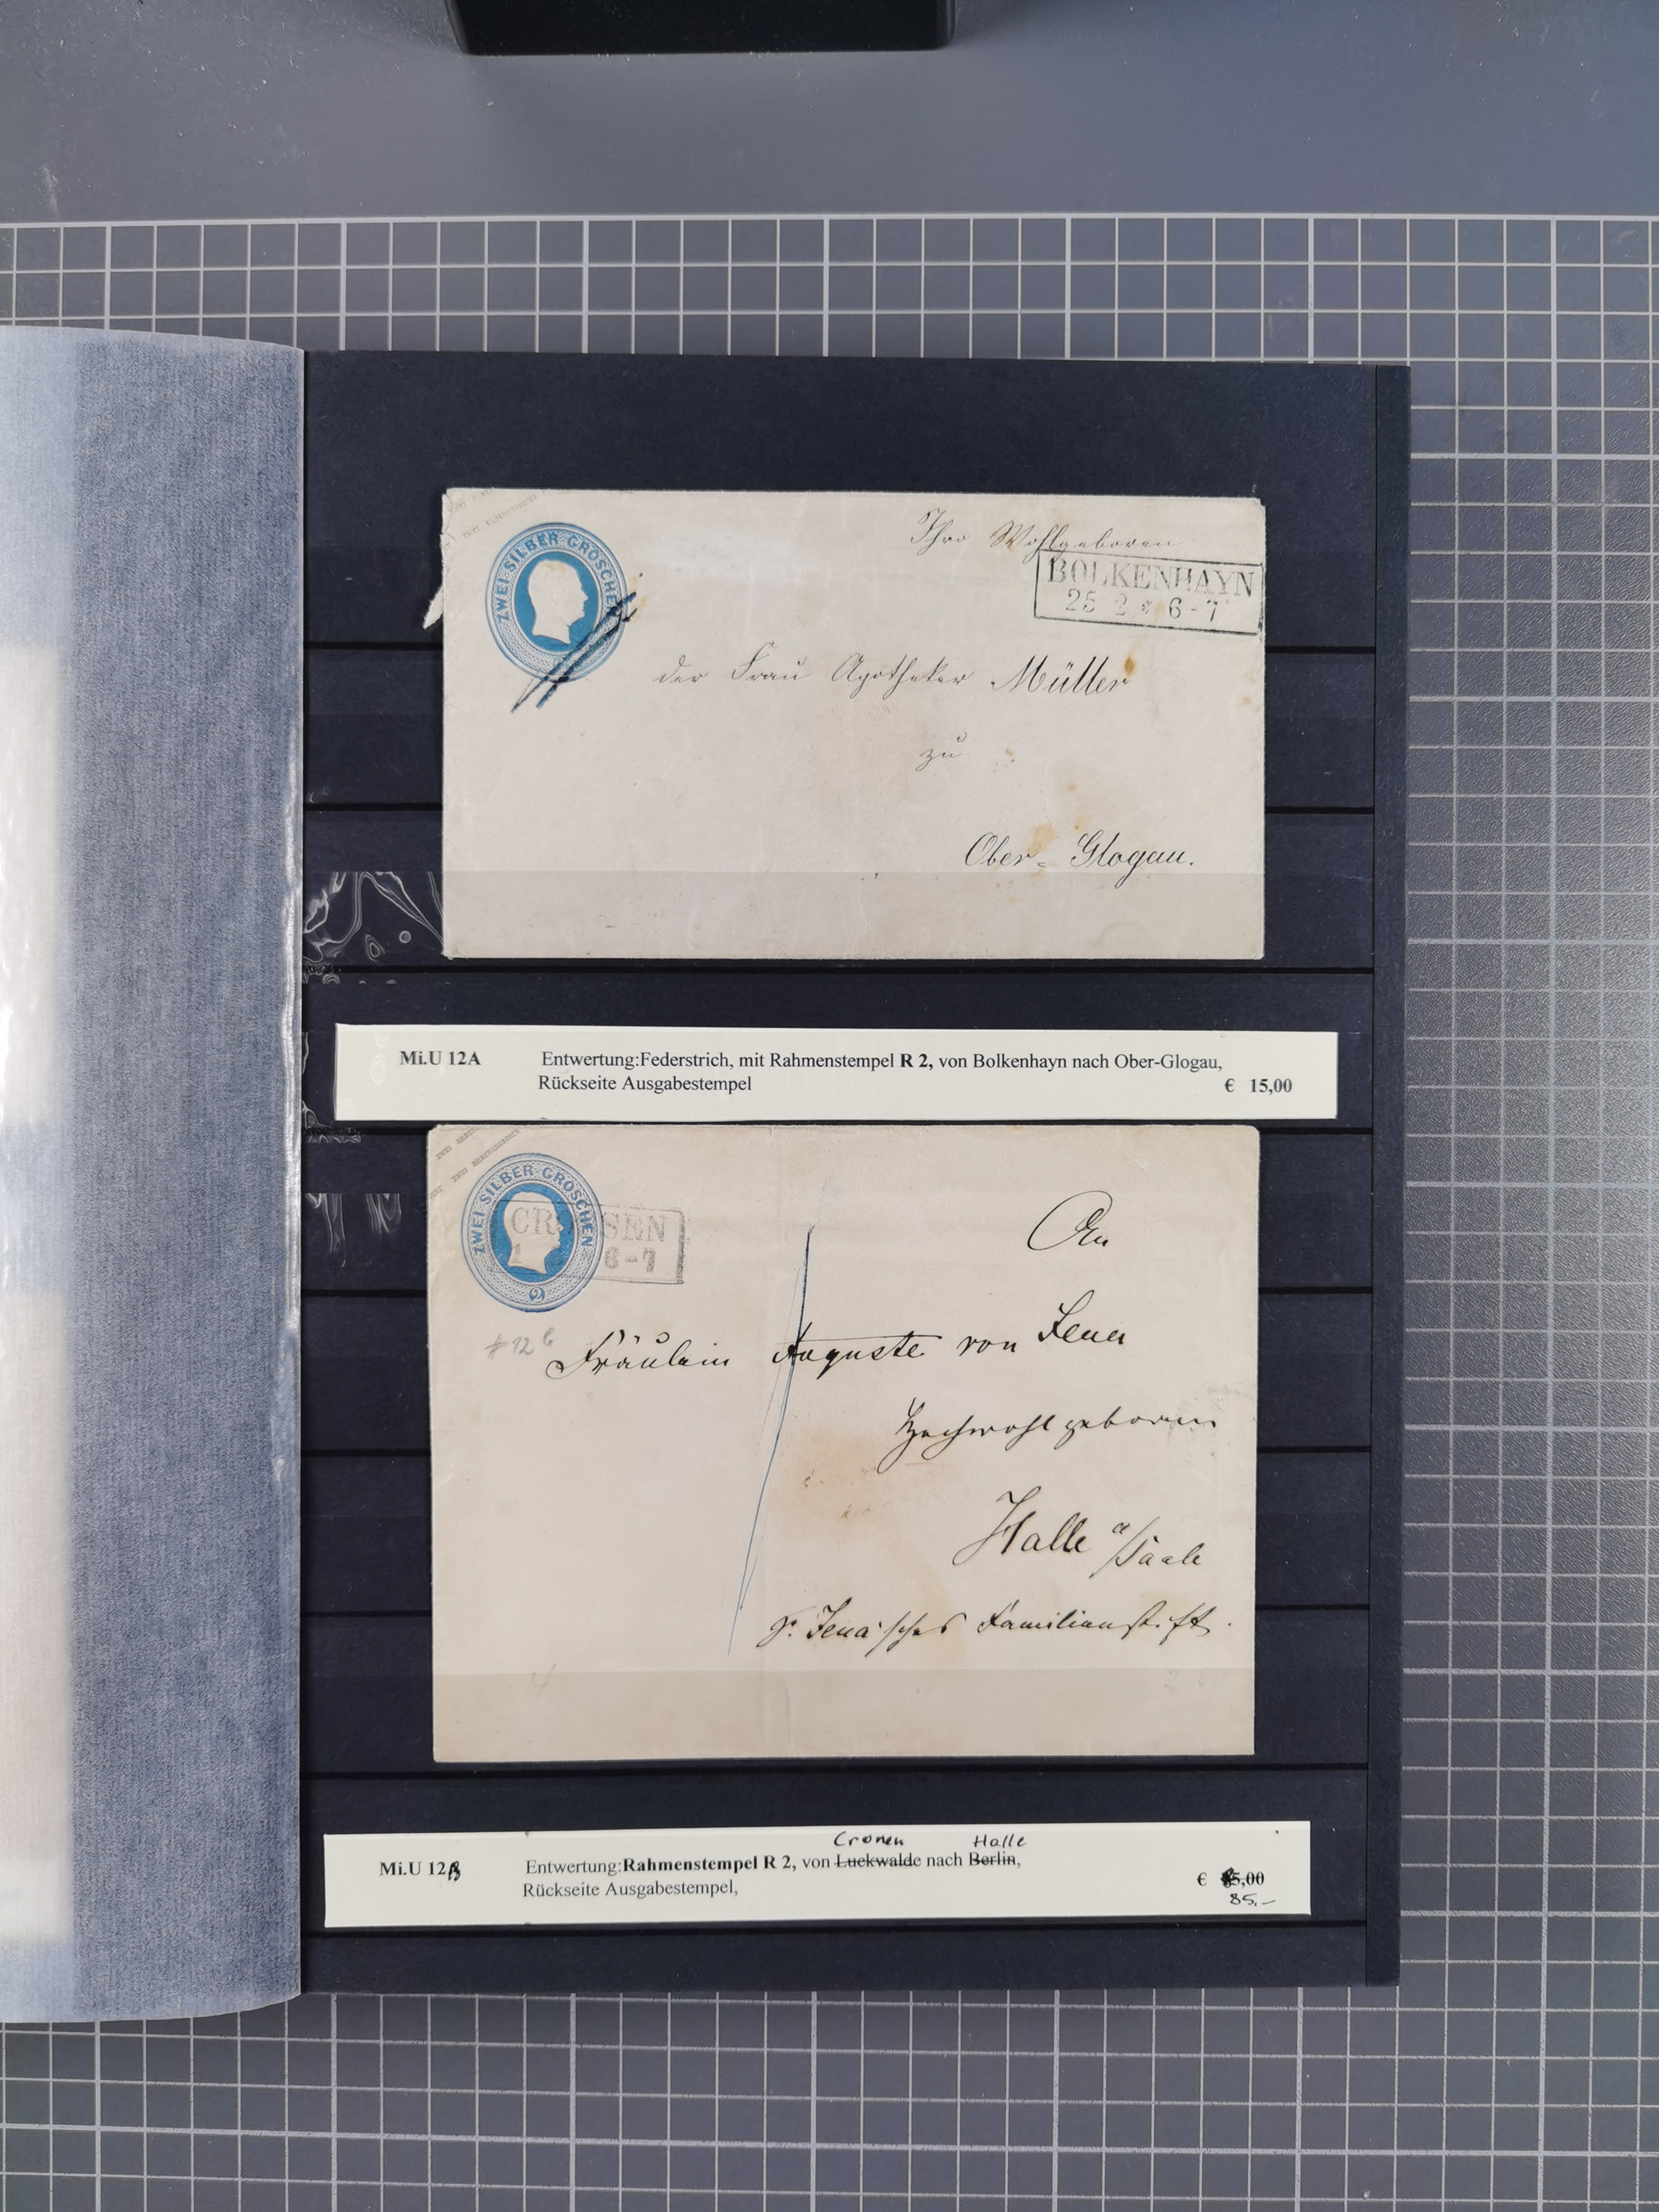 ZWEI SILBER GROSCHEN
Ihro Wohlgeboren
BOLKENHAYN
25 2 * 6-7
der Frau Apotheker Müller
zu
Ober-Glogau.
Mi.U 12A Entwertung:Federstrich, mit Rahmenstempel R 2, von Bolkenhayn nach Ober-Glogau,
Rückseite Ausgabestempel € 15,00
ZWEI SILBER GROSCHEN
2
6-7
An
#12b
Fräulein Auguste von Jena
Hochwohlgeboren
Halle a/Saale
v. Jena'sches Familienstift.
Cronen Halle
Mi.U 12B Entwertung:Rahmenstempel R 2, von Luckwalde nach Berlin,
Rückseite Ausgabestempel, € 5,00
85,-